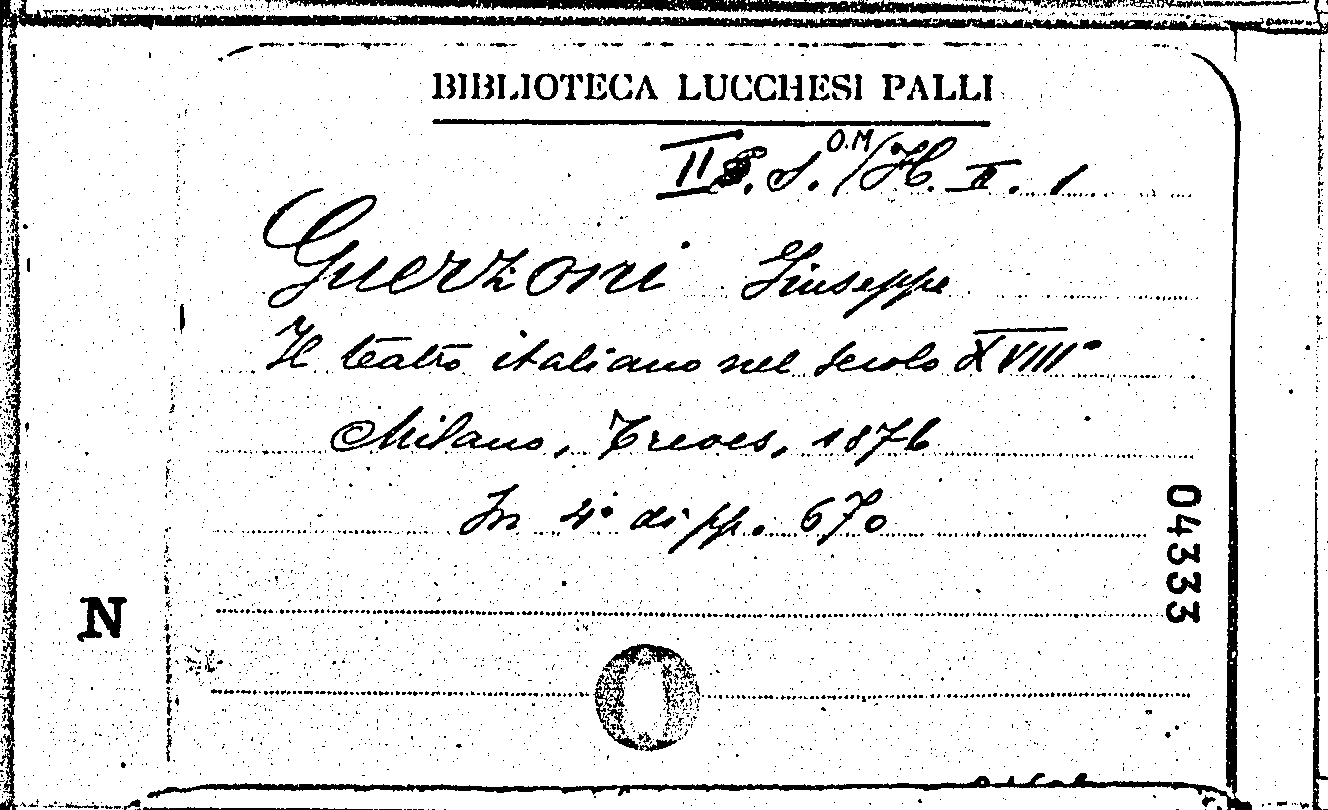 BIBLIOTECA LUCCHESI PALLI
II S. S. O.M/H. II. 1
Guerzoni Giuseppe
Il teatro italiano nel secolo XVIII°
Milano, Treves, 1876
In 4° di pp. 670
04333
N